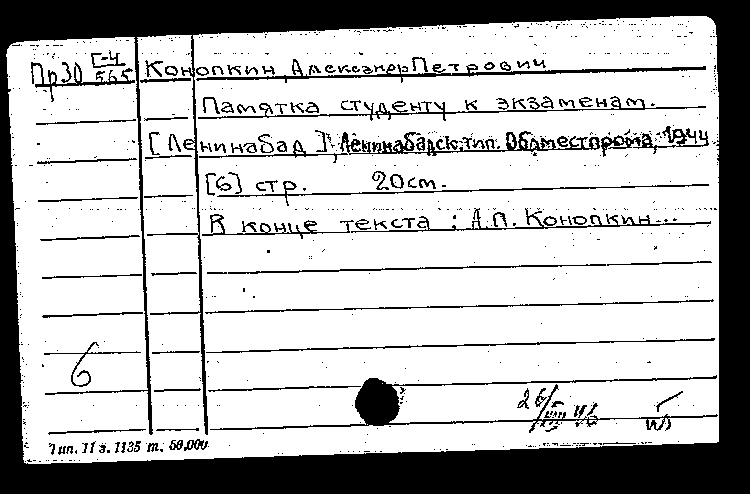 Пр30 Г-4/565 Конопкин, Александр Петрович
Памятка студенту к экзаменам.
[Ленинабад], Ленинабадск. тип. Облместпрома, 1944
[6] стр. 20 cm.
В конце текста : А.П. Конопкин...
6
26/VIII 46
Тип. 11 з. 1135 т. 50,000